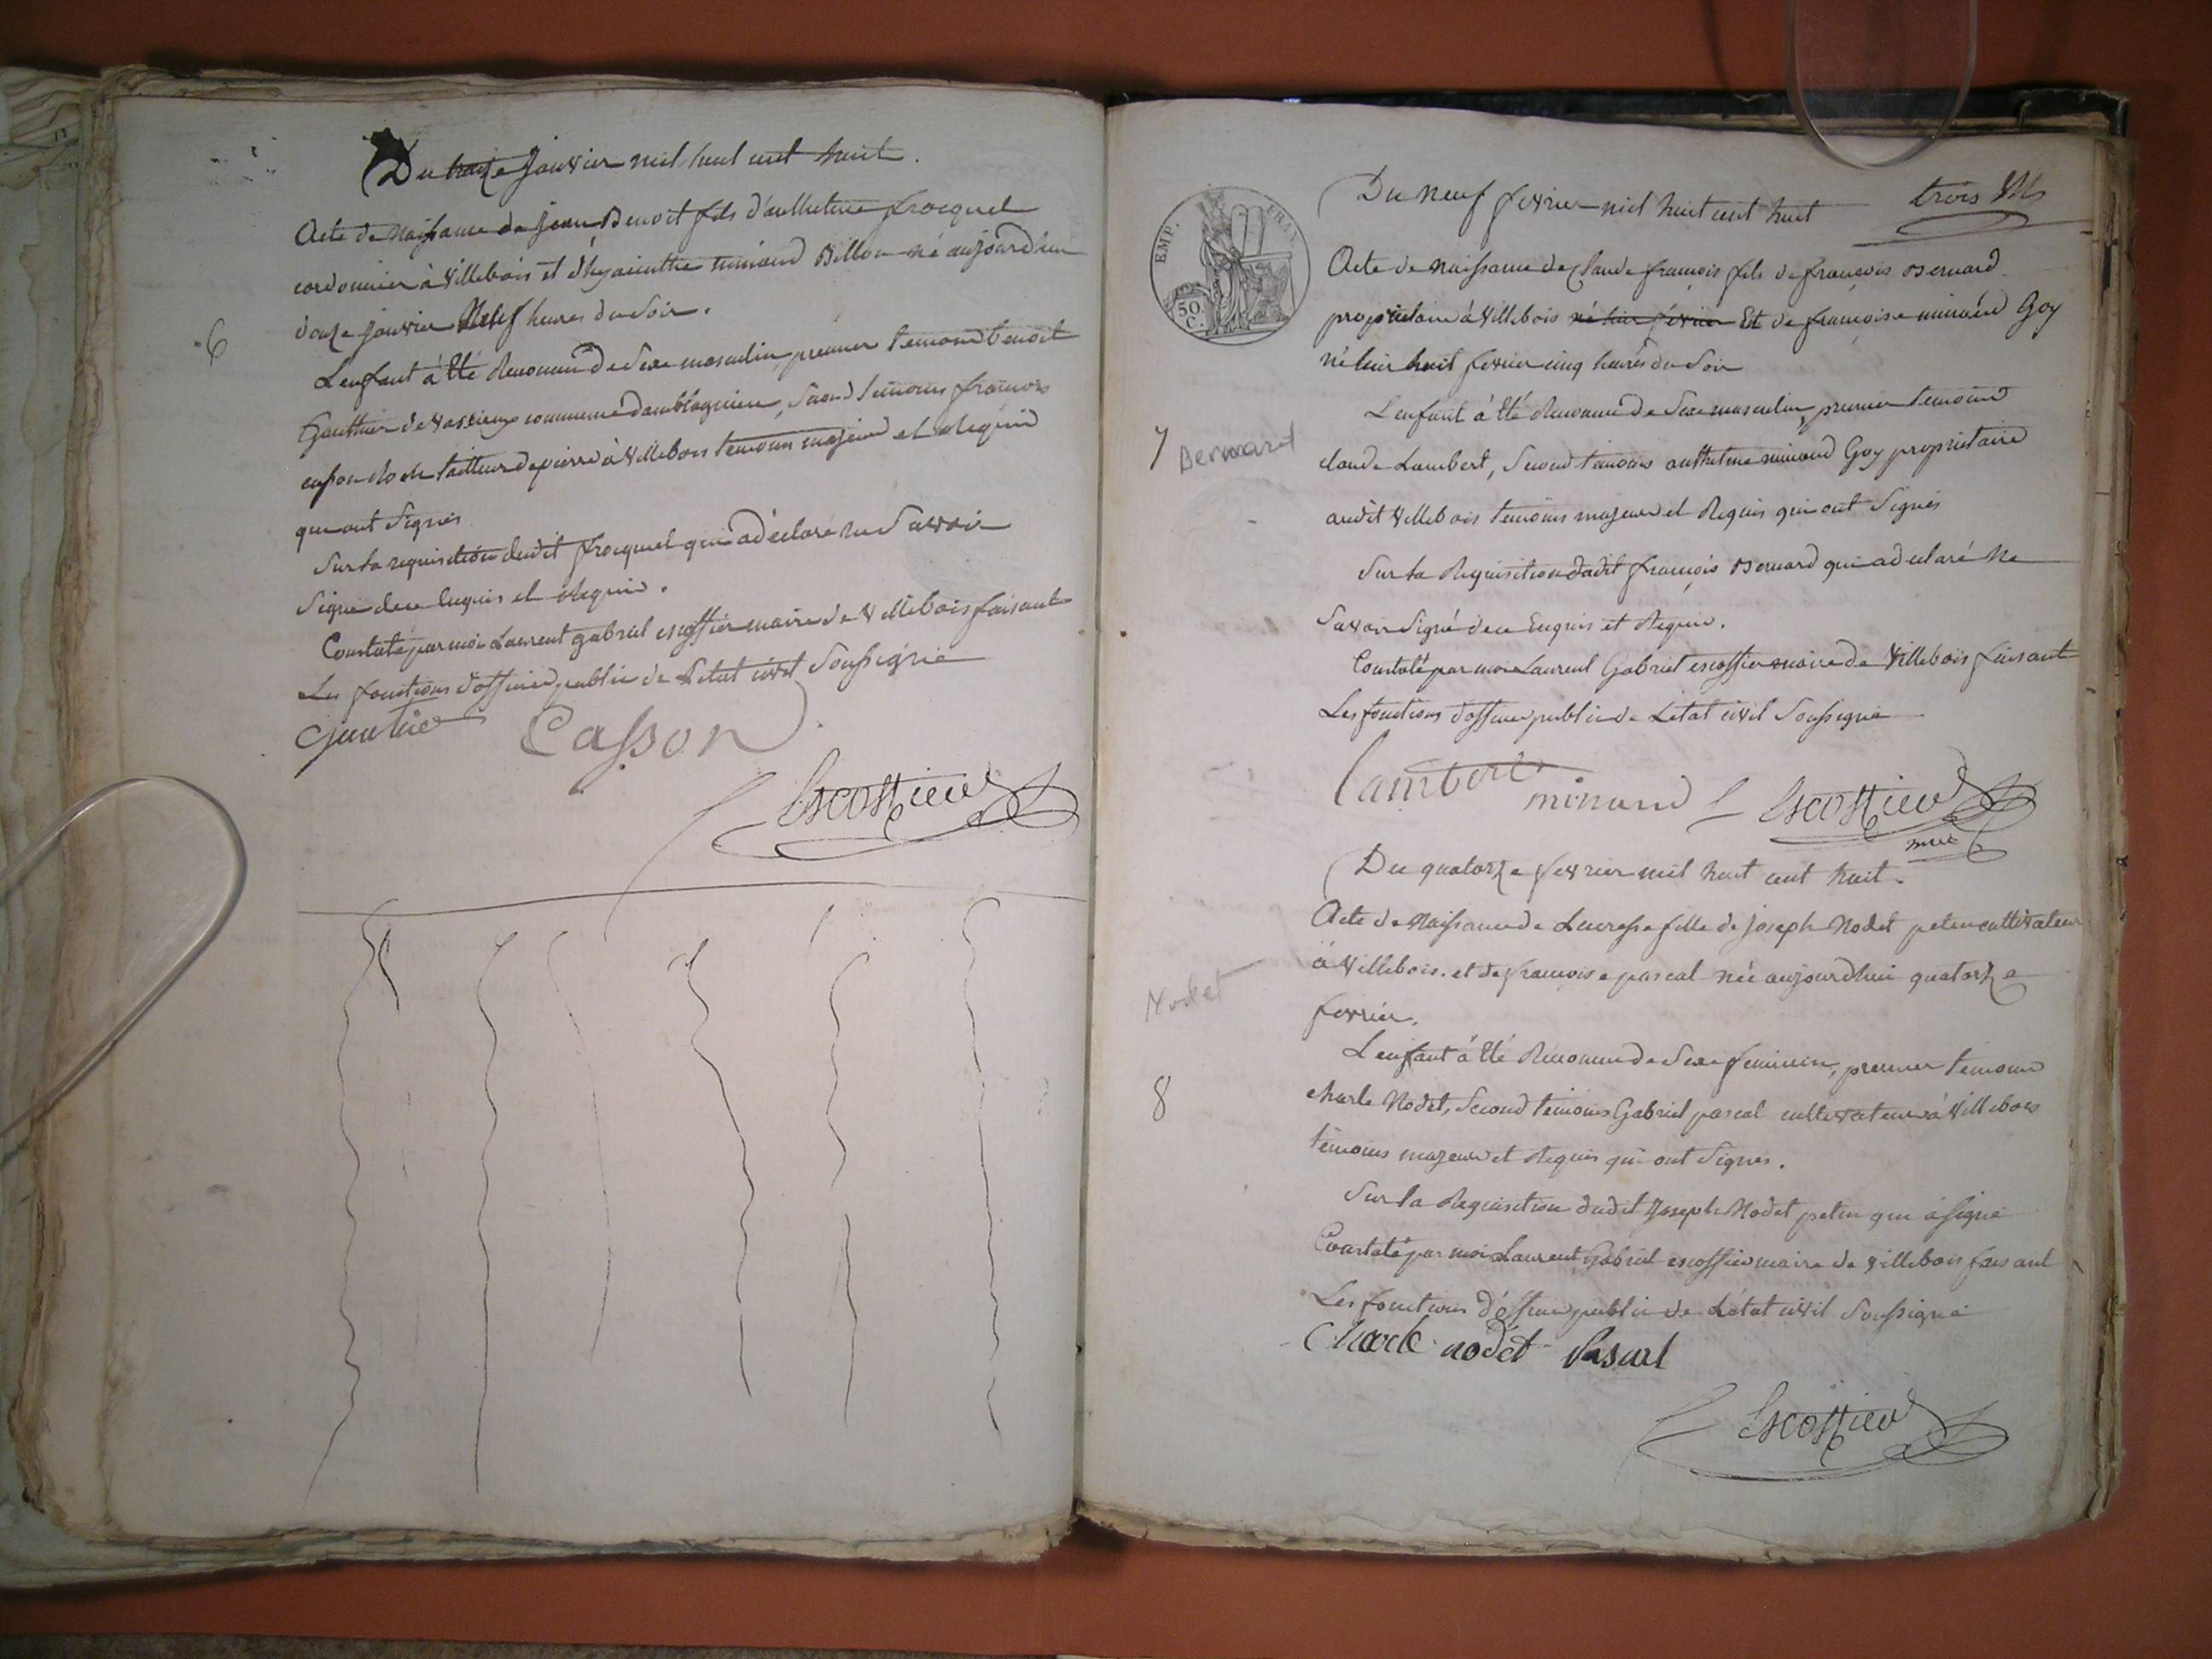 Du treize janvier mil huit cent huit.
Acte de Naissance de jean Benoit fils d'anthelme froquet
cordonnier à Villebois et d'hyacinthe minand Billon né aujourd'hui
douze janvier heures du soir.
6
L'enfant à été Reconnu de Sexe masculin, premier temoin benoit
Gauthier de Vassieux commune damblagnieu, Second temoins francois
tailleur de pierre à Villebois temoins majeurs et Requis
qui ont Signés
Sur la requisition dudit froquet qui a déclaré ne Savoir
Signé de ce Enquis et Requis.
Constaté par moi Laurent gabriel escoffier maire de Villebois faisant
Les fonctions d'officier public de Letat civil Soussigné
Casson
L Escoffier
EMP. FRAN.
50.
C.
Du neuf fevrier mil huit cent huit
trois
Acte de Naissance de Claude francois fils de francois Bernard
propriétaire à Villebois né hier fevrier Et de francoise minand Goy
né hier huit fevrier cinq heures du Soir
L'enfant à été Reconnu de Sexe masculin, premier temoins
7
Bernard
claude Lambert, Second temoins anthelme minand Goy propriétaire
audit Villebois temoins majeurs et Requis qui ont Signés
Sur la Requisition dudit françois Bernard qui a déclaré Ne
Savoir Signé de ce Enquis et Requis.
Constaté par moi Laurent Gabriel escoffier maire de Villebois faisant
Les fonctions d'officier public de L'état civil Soussigné
Lambert minand L Escoffier
Du quatorze fevrier mil huit cent huit.
Acte de Naissance de Lucresse fille de joseph Nodet petin cultivateur
à Villebois. et de francoise pascal née aujourd'hui quatorze
Nodet
fevrier.
L'enfant à été Reconnu de Sexe feminin, premier temoins
8
charle Nodet, Second temoins Gabriel pascal cultivateurs à Villebois
temoins majeurs et Requis qui ont Signés.
Sur la Requisition dudit Joseph Nodet petin qui à signé
Constaté par moi Laurent Gabriel escoffier maire de villebois faisant
Les fonctions d'officier public de L'état civil Soussigné
Charle nodet Pascal
L Escoffier